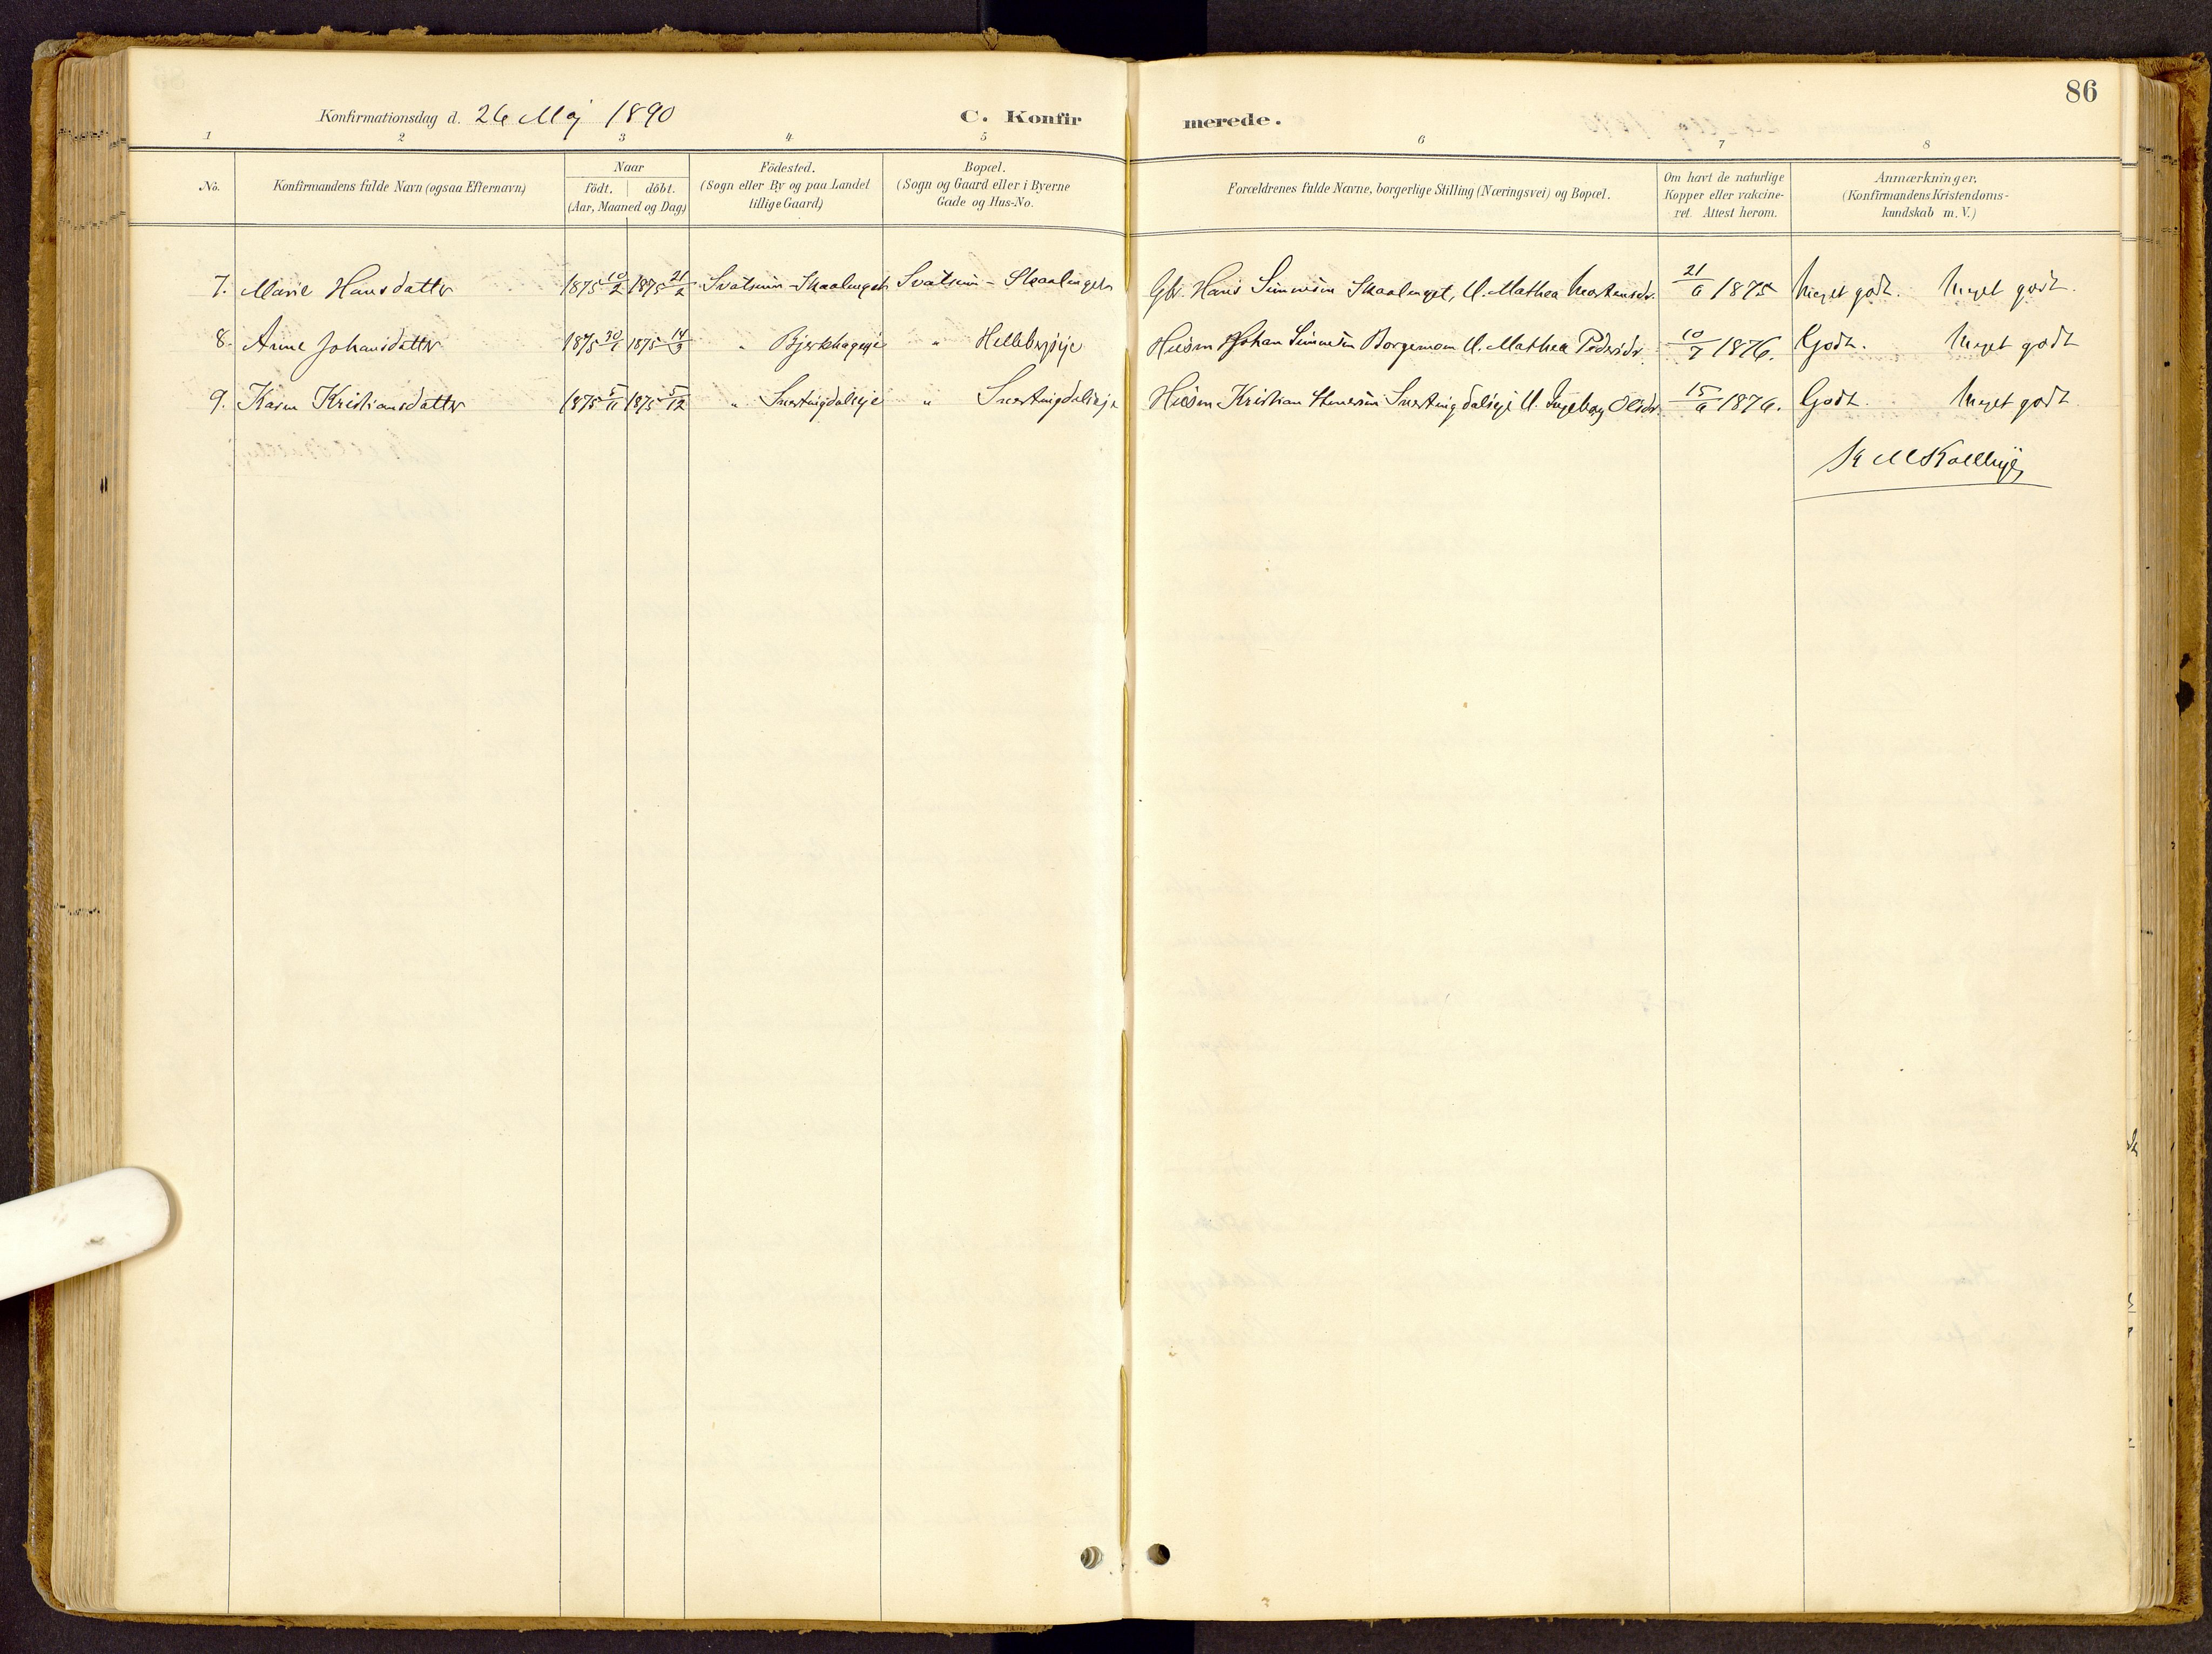 86
Konfirmationsdag d. 26 Maj 1890 C. Konfirmerede.
1 2 3 4 5 6 7 8
No. Konfirmandens fulde Navn (ogsaa Efternavn) Naar födt. döbt. (Aar, Maaned og Dag) Födested. (Sogn eller By og paa Landet tillige Gaard) Bopæl. (Sogn og Gaard eller i Byerne Gade og Hus-No. Forældrenes fulde Navne, borgerlige Stilling (Næringsvei) og Bopæl. Om havt de naturlige Kopper eller vakcineret. Attest herom. Anmærkninger. (Konfirmandens Kristendomskundskab m. V.)
7. Marie Hansdatter 1875 10/2 1875 21/2 Svatsum - Skaalenget Svatsum - Skaalenget Gbr. Hans Simensen Skaalenget, U. Mathea Mortensdr. 21/6 1875 Meget godt. Meget godt.
8. Anne Johansdatter 1875 30/1 1875 14/3 " Bjerkhageeje " Hellebergeje Husm Johan Simensen U. Mathea Pedersdr 10/7 1876. Godt. Meget godt
9. Karen Kristiansdatter 1875 5/11 1875 5/12 " Snertingdaleje " Snertingdaleje Husm Kristian Snertingdaleje U. Ingeborg Olsdr 15/6 1876. Godt. Meget godt.